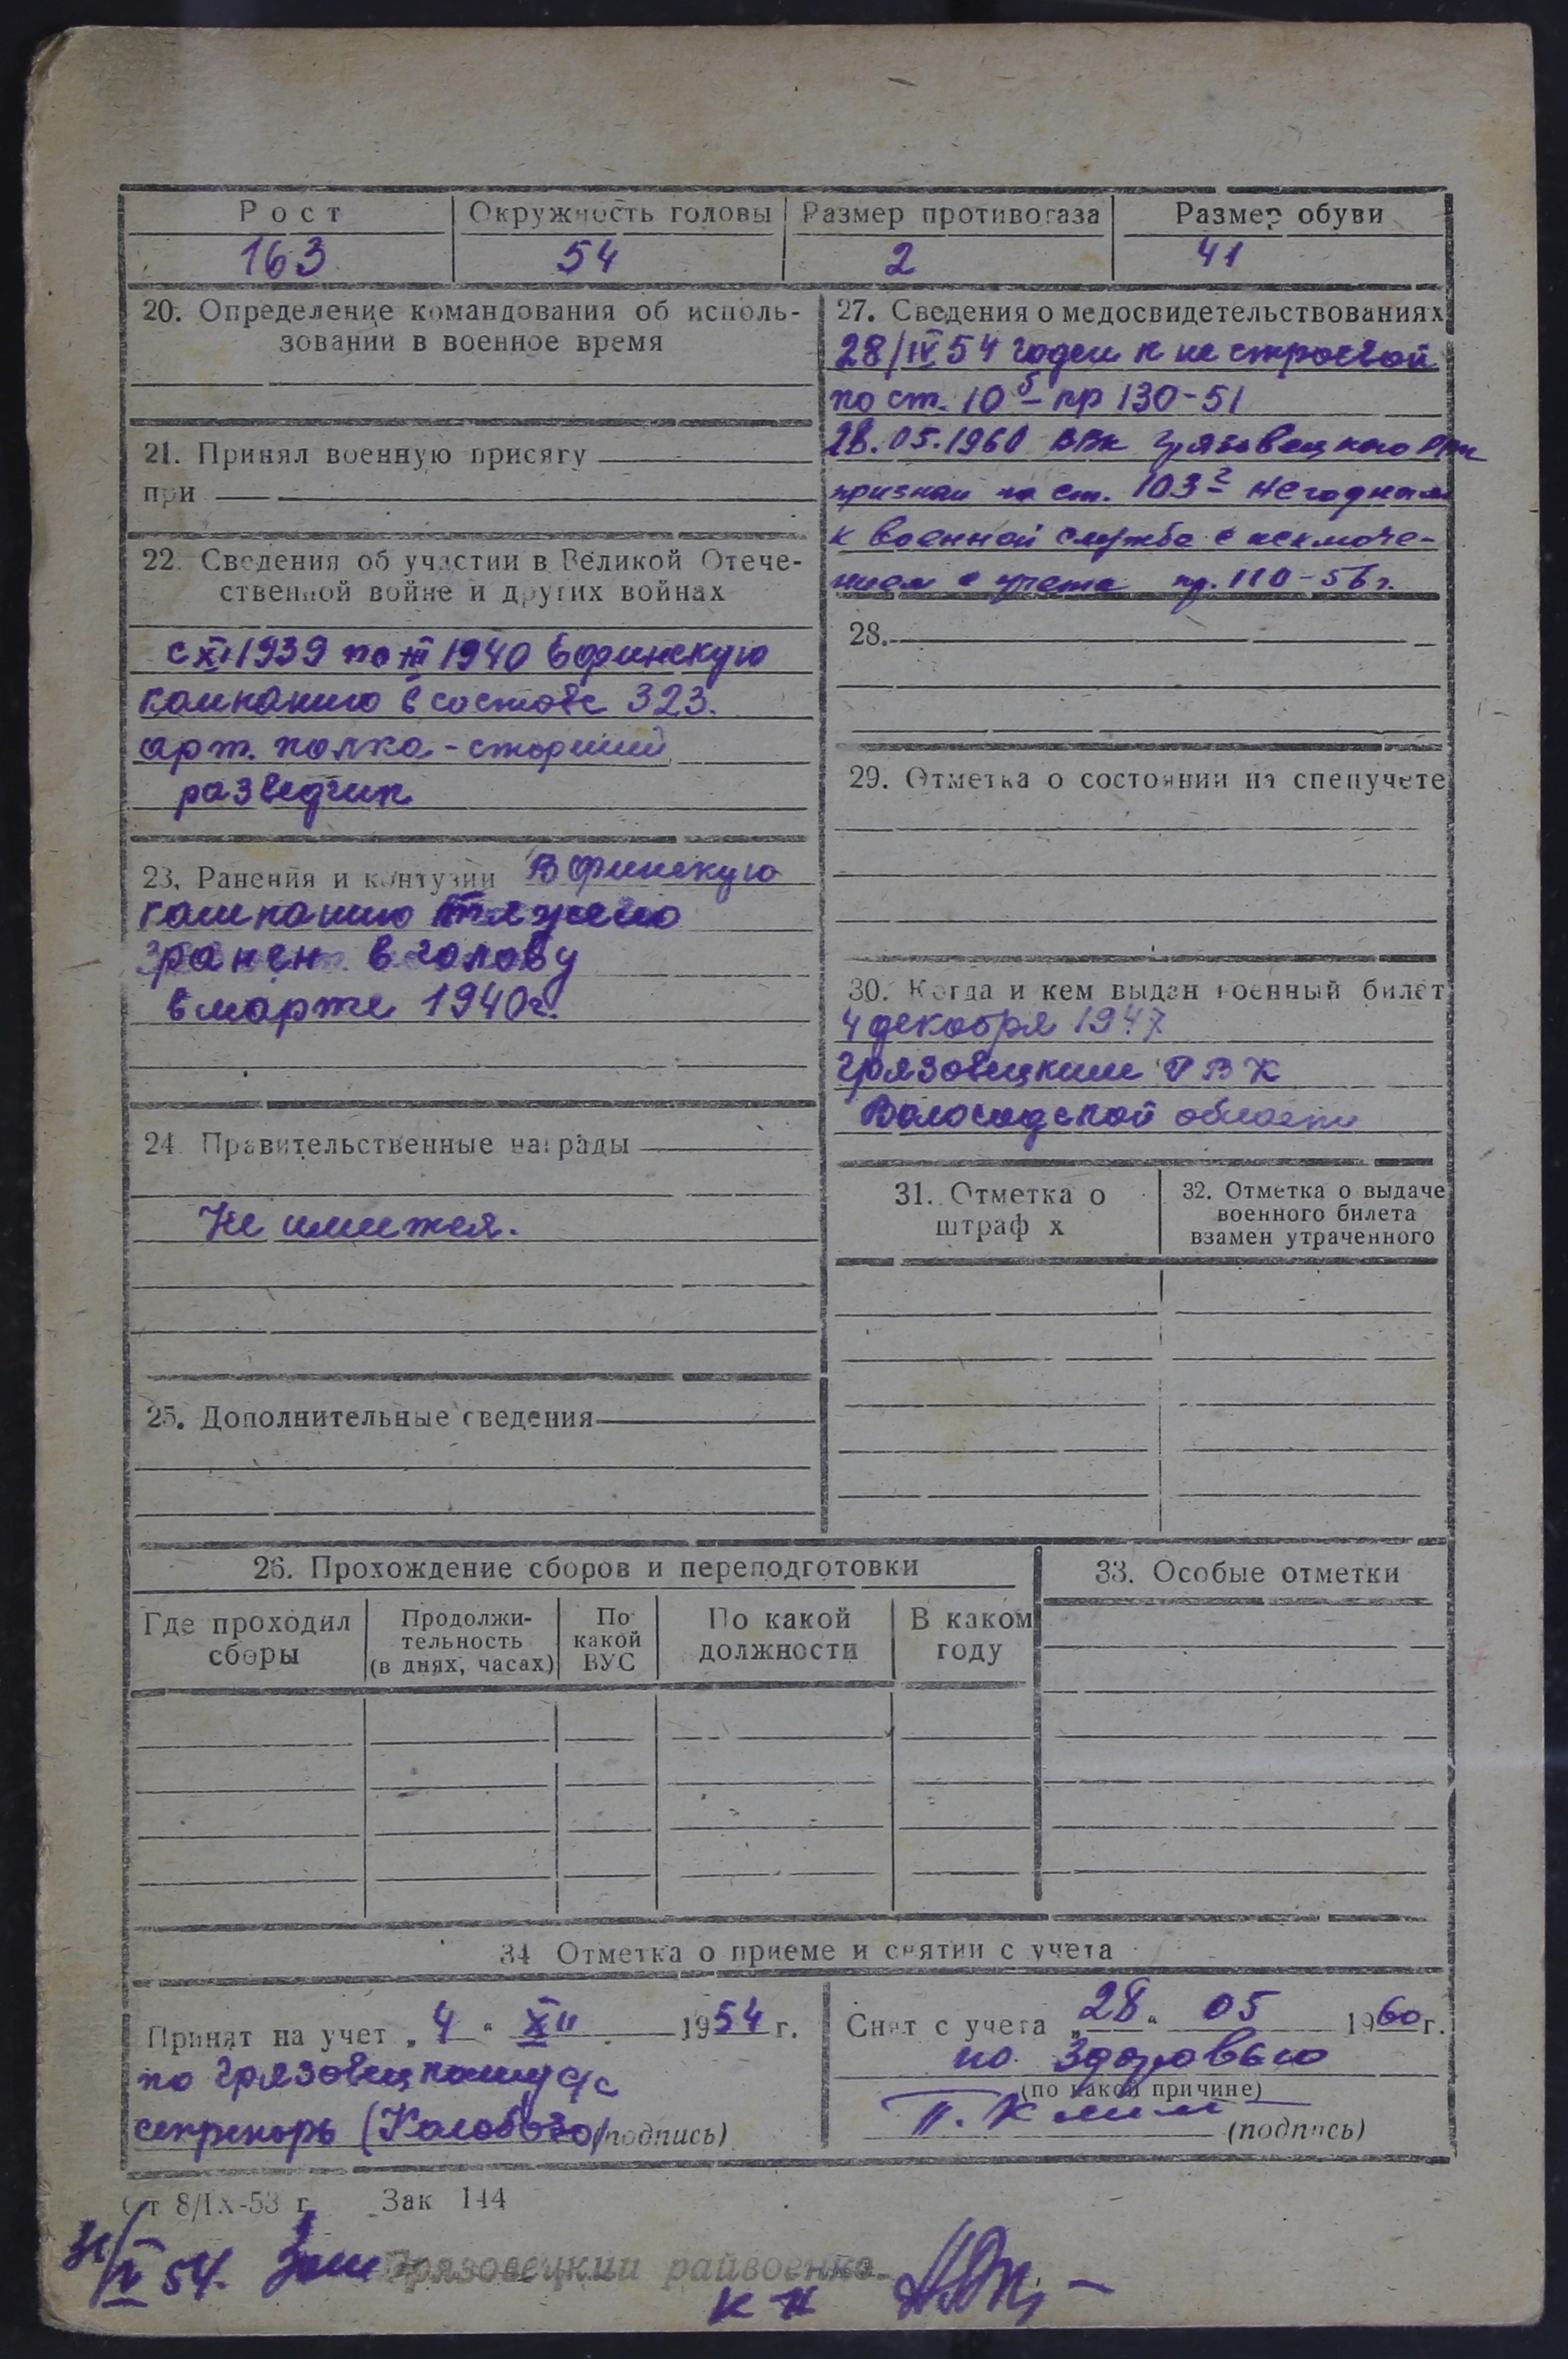 Рост Окружность головы Размер противогаза Размер обуви
163 54 2 41
20. Определение командования об исполь-
зовании в военное время
21. Принял военную присягу
при
22. Сведения об участии в Великой Отече-
ственной войне и других войнах
с XI 1939 по III 1940 в финскую
компанию в составе 323.
арт. полка - старший
разведчик
23. Ранения и контузии В финскую
компанию тяжело
ранен в голову
в марте 1940г.
24. Правительственные награды
Не имеется.
25. Дополнительные сведения
27. Сведения о медосвидетельствованиях
28/IV 54 годен к не строевой
по ст. 10б пр 130-51
28.05.1960 ВВК Грязовецкого РВК
признан по ст. 103г негодным
к военной службе с исключе-
нием с учета пр. 110-56г.
28.
29. Отметка о состоянии на спецучете
30. Когда и кем выдан военный билет
4 декабря 1947
Грязовецким РВК
Вологодской области
31. Отметка о
штраф х
32. Отметка о выдаче
военного билета
взамен утраченного
26. Прохождение сборов и переподготовки
Где проходил
сборы
Продолжи-
тельность
(в днях, часах)
По
какой
ВУС
По какой
должности
В каком
году
33. Особые отметки
34 Отметка о приеме и снятии с учета
Принят на учет „4“ XII 1954 г.
по Грязовецкому с/с
секретарь (подпись)
Снят с учета „28“ 05 1960г.
по здоровью
(по какой причине)
(подпись)
От 8/IX-53 г. Зак 144
IV 54. Зам Грязовецкий райвоенко.
к н